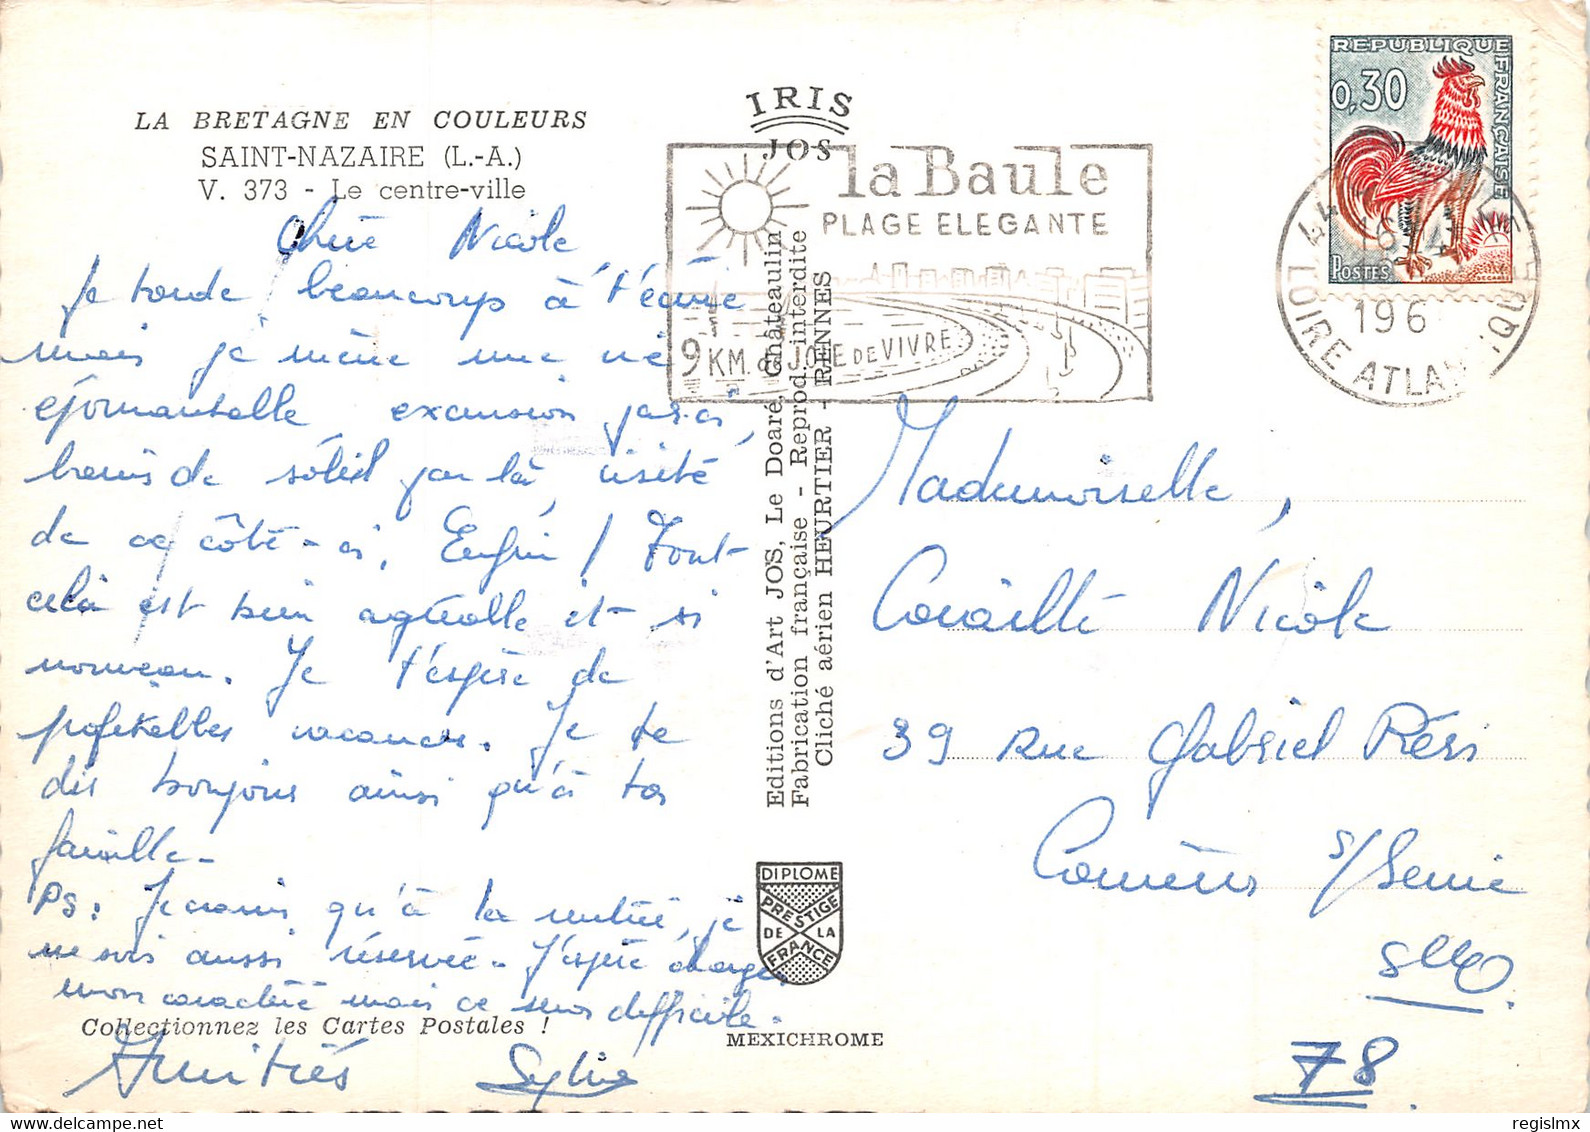 LA BRETAGNE EN COULEURS
SAINT-NAZAIRE (L.-A.)
V. 373 - Le centre-ville
Chère Nicole,
Je tarde beaucoup à t'écrire
mais je mène une vie
époumantelle excursion par-ci,
bains de soleil par là, visite
de ce côté-ci, Enfin ! Tout
celà est bien agréable et si
nouveau. Je t'espère de
profitables vacances. Je te
dis bonjour ainsi qu'à ta
famille.
PS: Je crains qu'à la rentrée, je
ne sois aussi réservée. J'espère changer
mon caractère mais ce sera difficile.
Collectionnez les Cartes Postales !
Amitiés Sylvie
IRIS
JOS
la Baule
PLAGE ELEGANTE
9 KM. de JOIE DE VIVRE
Editions d'Art JOS, Le Doaré, Châteaulin
Fabrication française - Reprod. interdite
Cliché aérien HEURTIER - RENNES
DIPLOME
PRESTIGE
DE LA
FRANCE
MEXICHROME
REPUBLIQUE FRANÇAISE
0,30
POSTES
44
16
196
LOIRE ATLAN
Mademoiselle,
Nicole
39 Rue Gabriel Péri
s/Seine
S&O.
78.
regislmx